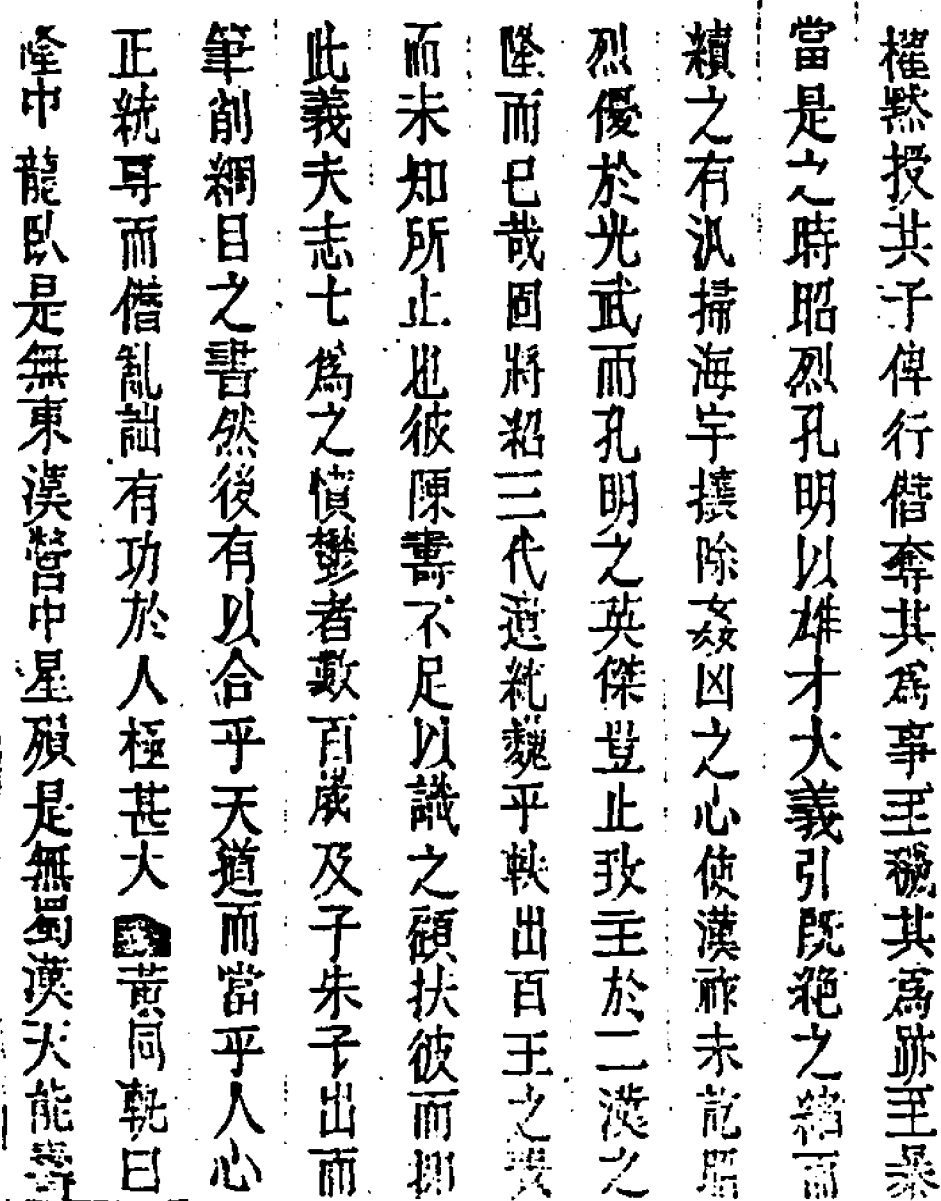 權黙授其子俾行僭奪其為事至穢其為跡至暴
當是之時昭烈孔明以雄才大義引既絶之緒而
續之有汎掃海宇攘除姦凶之心使漢祚未訖昭
烈優於光武而孔明之英傑豈止致主於二漢之
隆而已哉固將紹三代道統巍乎軼出百王之
而未知所止也彼陳壽不足以議之顧扶彼而抑
此義夫志士為之憤鬱者數百歲及子朱子出而
筆削綱目之書然後有以合乎天道而當乎人心
正統尊而僭亂詘有功於人極甚大 黄同軌曰
隆中龍臥是無東漢營中星殞是無蜀漢天能壽